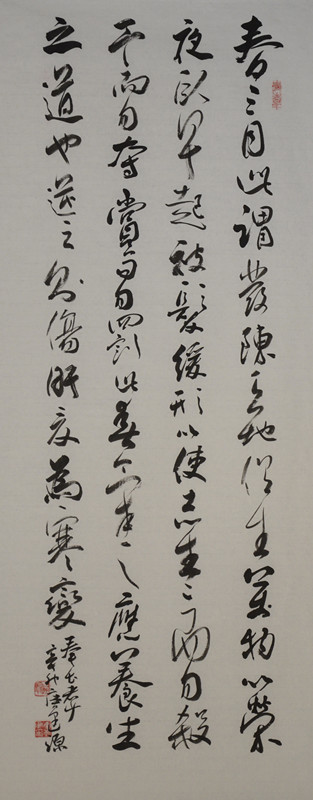 春三月此謂發陳天地俱生萬物以榮
夜臥早起被髮緩形以使志生々而勿殺
予而勿奪賞而勿罰此春氣之應養生
之道也逆之則傷肝夏為寒變
奉长者少
辛卯